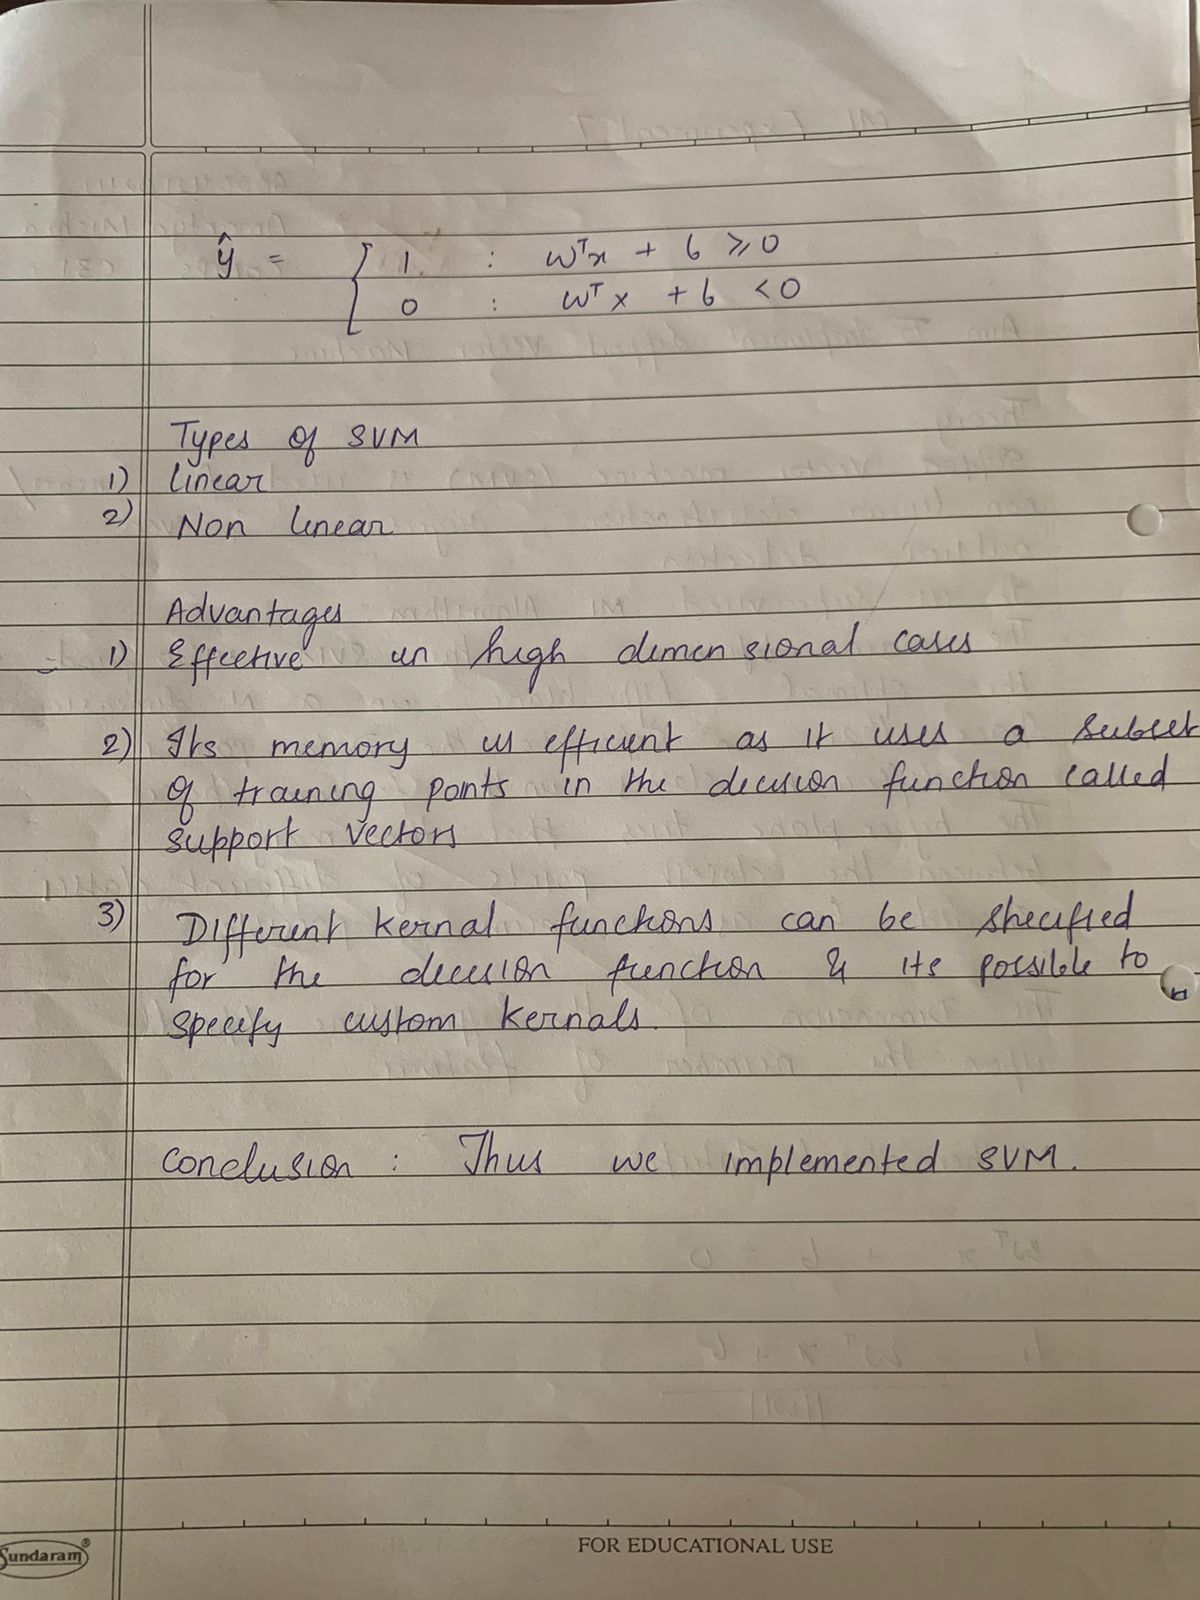 ŷ = { 1 : wᵀx + b ≥ 0
0 : wᵀx + b < 0
Types of SVM
1) linear
2) Non linear
Advantages
1) Effective in high dimensional cases
2) Its memory is efficient as it uses a subset
of training points in the decision function called
support vectors
3) Different kernal functions can be shecified
for the decision function & its possible to
specify custom kernals.
Conclusion : Thus we implemented SVM.
Sundaram®
FOR EDUCATIONAL USE